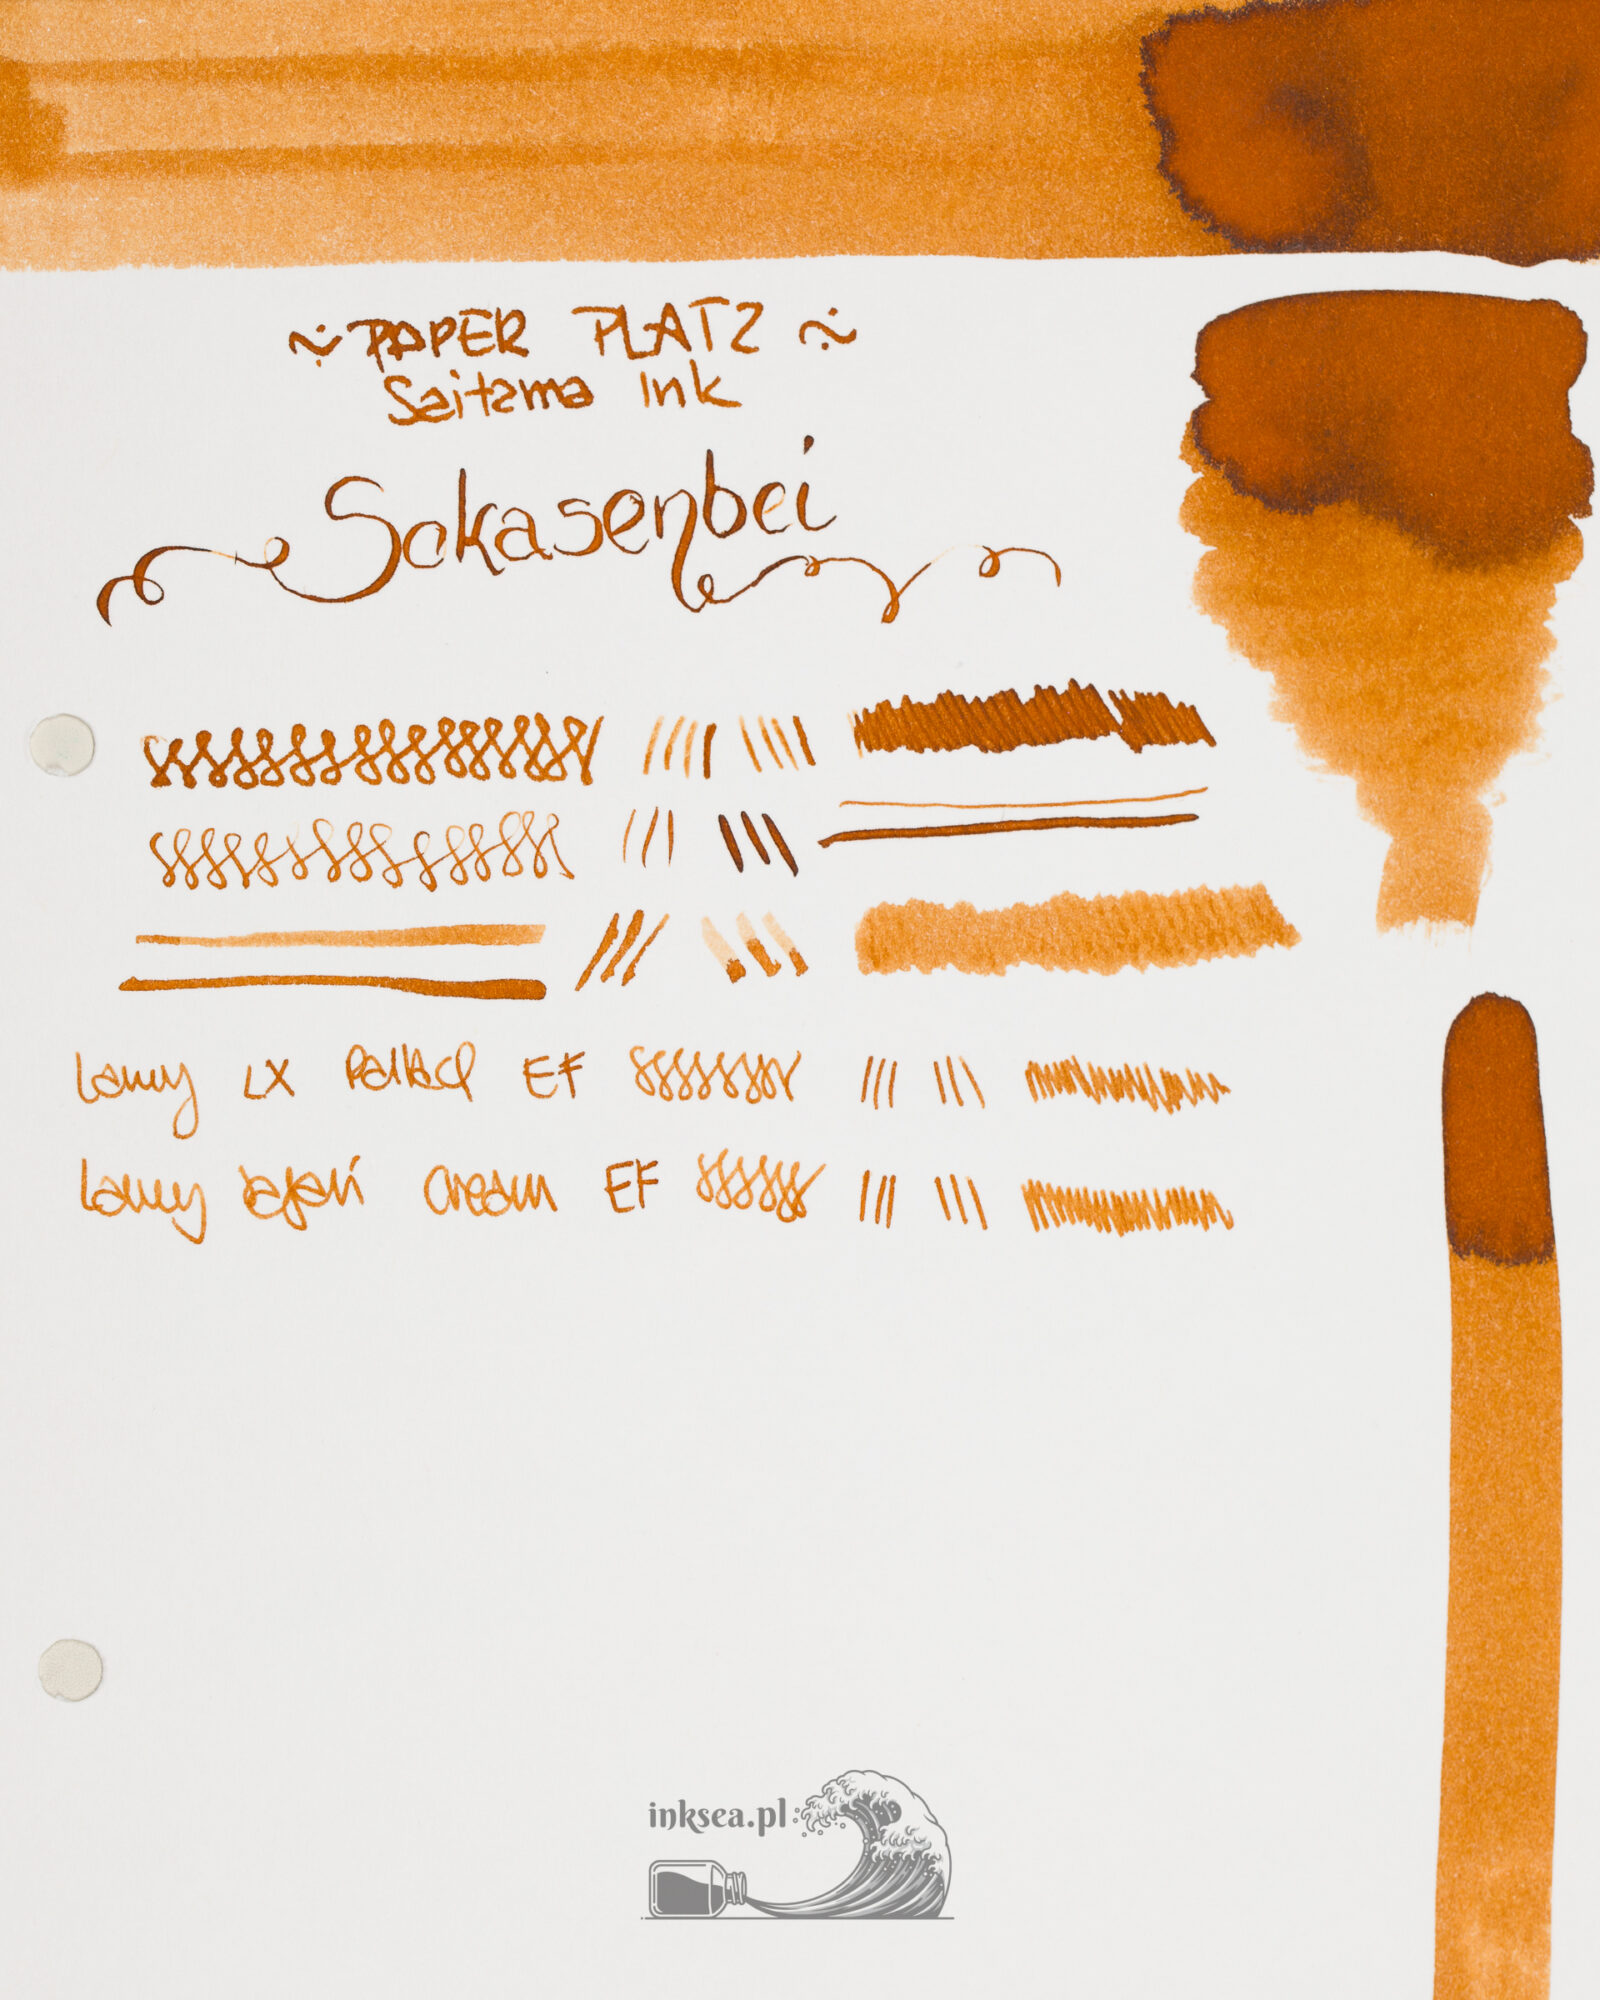 ~ PAPER PLATZ ~
Saitama Ink
Sokasenbei
Lamy LX Pallad EF
Lamy safari Cream EF
inksea.pl